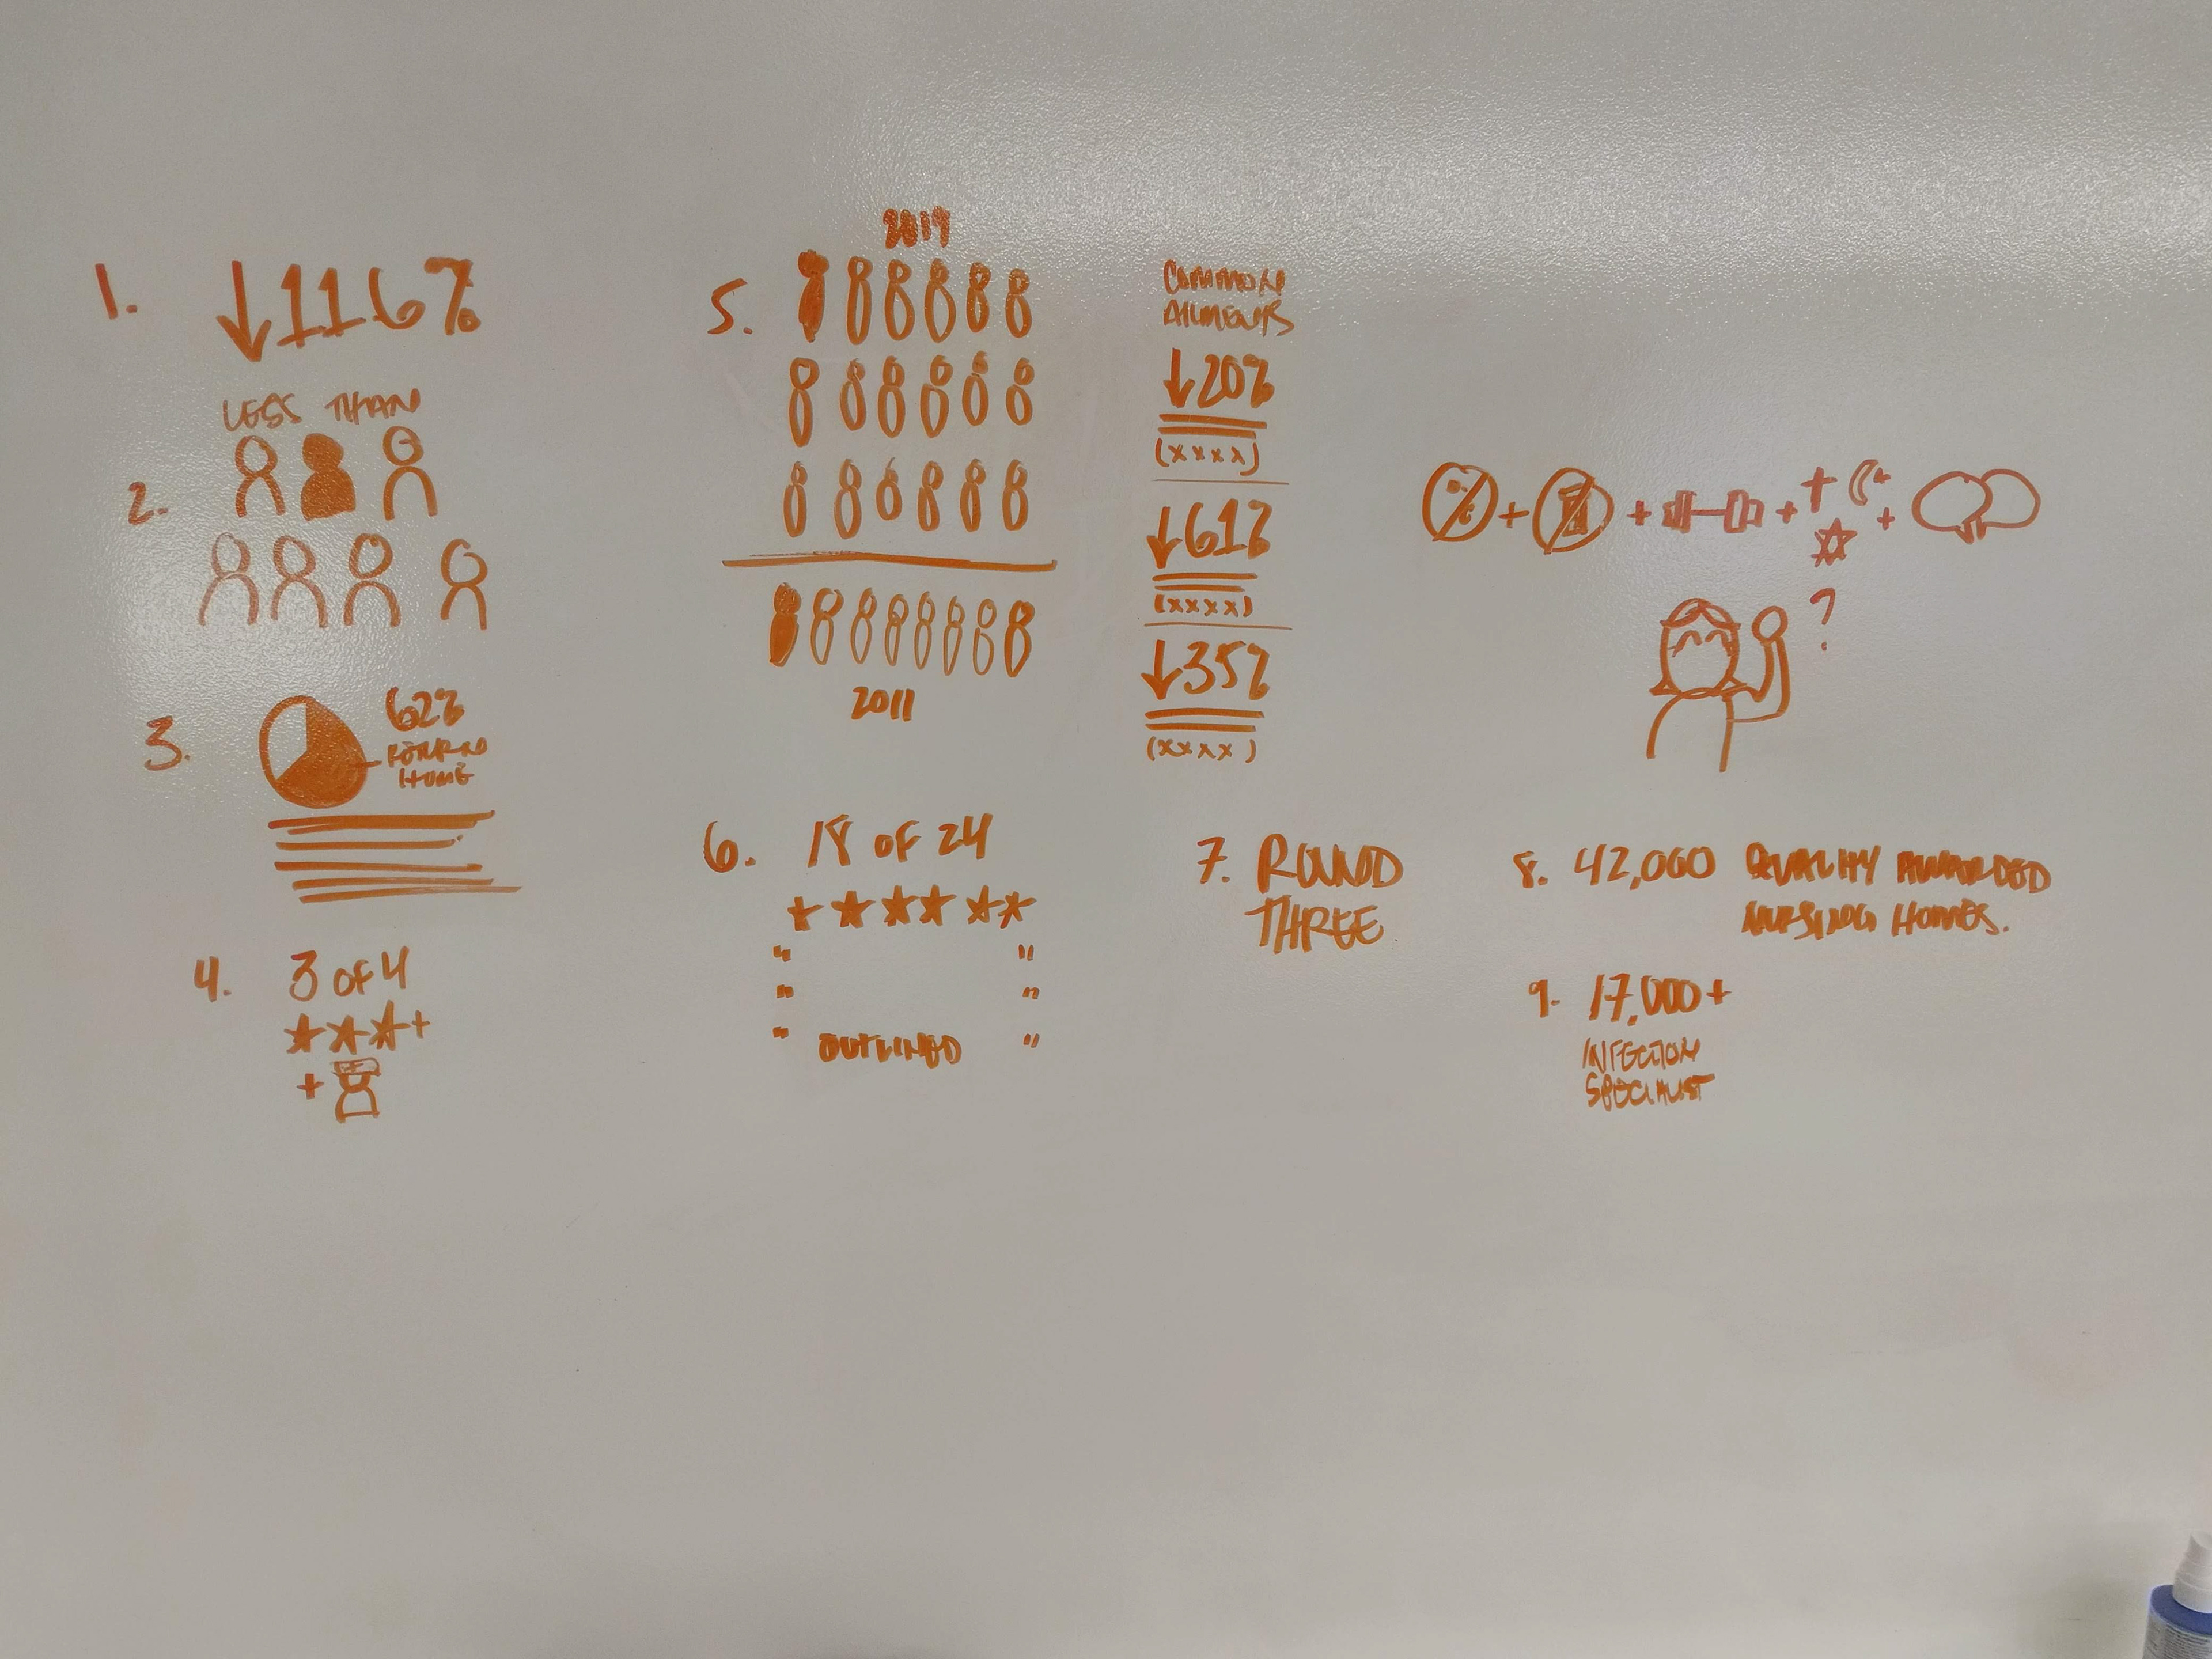 1. ↓1167%
LESS THAN
2.
3. 62%
RETURN
HOME
4. 3 OF 4
+
+
2019
5.
2011
COMMON
AILMENTS
↓20%
(xxxx)
↓61%
(xxxx)
↓35%
(xxxx)
+ + + +
?
6. 18 OF 24
" "
" "
" OUTLINED "
7. ROUND
THREE
8. 42,000 QUALITY AWARDED
NURSING HOMES.
9. 17,000+
INFECTION
SPECIALIST